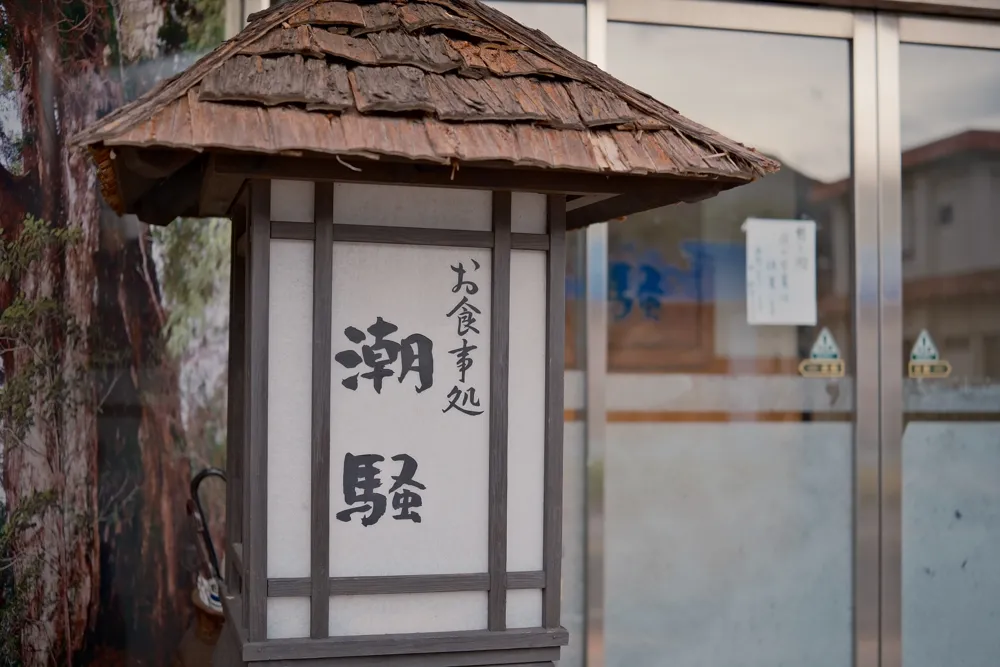 お食事処
潮騒
騒